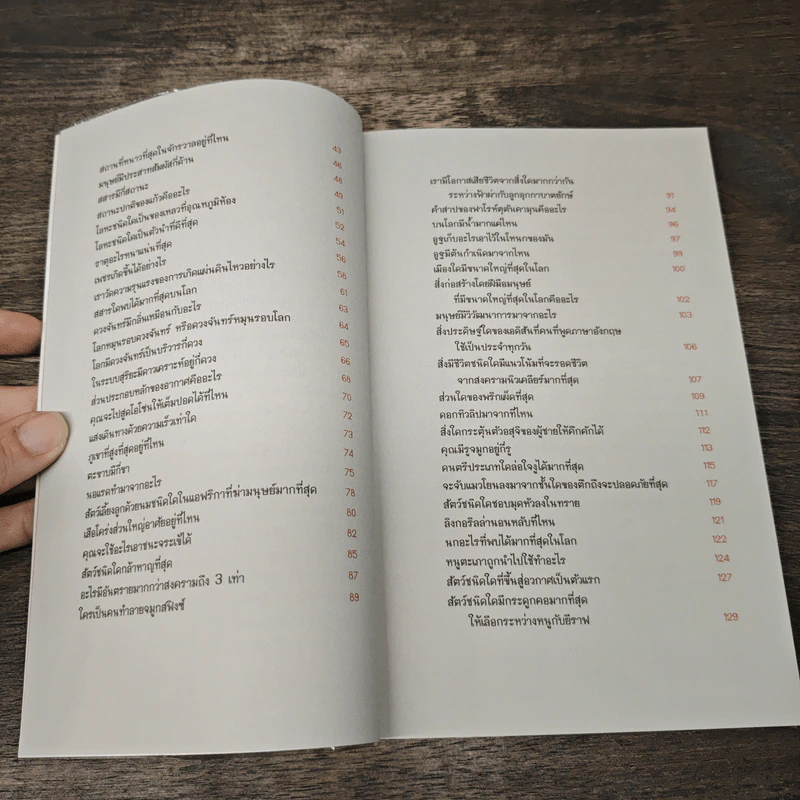 สถานที่หนาวที่สุดในจักรวาลอยู่ที่ไหน 43
มนุษย์มีประสาทสัมผัสกี่ด้าน 46
สสารมีกี่สถานะ 48
สถานะปกติของแก้วคืออะไร 49
โลหะชนิดใดเป็นของเหลวที่อุณหภูมิห้อง 51
โลหะชนิดใดเป็นตัวนำที่ดีที่สุด 52
ธาตุอะไรหนาแน่นที่สุด 54
เพชรเกิดขึ้นได้อย่างไร 56
เราวัดความรุนแรงของการเกิดแผ่นดินไหวอย่างไร 58
สสารใดพบได้มากที่สุดบนโลก 61
ดวงจันทร์มีกลิ่นเหมือนกับอะไร 63
โลกหมุนรอบดวงจันทร์ หรือดวงจันทร์หมุนรอบโลก 64
โลกมีดวงจันทร์เป็นบริวารกี่ดวง 65
ในระบบสุริยะมีดาวเคราะห์อยู่กี่ดวง 66
ส่วนประกอบหลักของอากาศคืออะไร 68
คุณจะไปสูดโอโซนให้เต็มปอดได้ที่ไหน 70
แสงเดินทางด้วยความเร็วเท่าใด 72
ภูเขาที่สูงที่สุดอยู่ที่ไหน 73
ตะขาบมีกี่ขา 74
นอแรดทำมาจากอะไร 75
สัตว์เลี้ยงลูกด้วยนมชนิดใดในแอฟริกาที่ฆ่ามนุษย์มากที่สุด 78
เสือโคร่งส่วนใหญ่อาศัยอยู่ที่ไหน 80
คุณจะใช้อะไรเอาชนะจระเข้ได้ 82
สัตว์ชนิดใดกล้าหาญที่สุด 85
อะไรมีอันตรายมากกว่าสงครามถึง 3 เท่า 87
ใครเป็นคนทำลายจมูกสฟิงซ์ 89
เรามีโอกาสเสียชีวิตจากสิ่งใดมากกว่ากัน
ระหว่างฟ้าผ่ากับลูกอุกกาบาตยักษ์ 91
คำสาปของฟาโรห์ตุตันคามุนคืออะไร 94
บนโลกมีน้ำมากแค่ไหน 96
อูฐเก็บอะไรเอาไว้ในโหนกของมัน 97
อูฐมีต้นกำเนิดมาจากไหน 99
เมืองใดมีขนาดใหญ่ที่สุดในโลก 100
สิ่งก่อสร้างโดยฝีมือมนุษย์
ที่มีขนาดใหญ่ที่สุดในโลกคืออะไร 102
มนุษย์มีวิวัฒนาการมาจากอะไร 103
สิ่งประดิษฐ์ใดของเอดิสันที่คนที่พูดภาษาอังกฤษ
ใช้เป็นประจำทุกวัน 106
สิ่งมีชีวิตชนิดใดมีแนวโน้มที่จะรอดชีวิต
จากสงครามนิวเคลียร์มากที่สุด 107
ส่วนใดของพริกเผ็ดที่สุด 109
ดอกทิวลิปมาจากที่ไหน 111
สิ่งใดกระตุ้นตัวอสุจิของผู้ชายให้คึกคักได้ 112
คุณมีรูจมูกอยู่กี่รู 113
ดนตรีประเภทใดล่อใจงูได้มากที่สุด 115
จะจับแมวโยนลงมาจากชั้นใดของตึกถึงจะปลอดภัยที่สุด 117
สัตว์ชนิดใดชอบมุดหัวลงในทราย 119
ลิงกอริลล่านอนหลับที่ไหน 121
นกอะไรที่พบได้มากที่สุดในโลก 122
หนูตะเภาถูกนำไปใช้ทำอะไร 124
สัตว์ชนิดใดที่ขึ้นสู่อวกาศเป็นตัวแรก 127
สัตว์ชนิดใดมีกระดูกคอมากที่สุด
ให้เลือกระหว่างหนูกับยีราฟ 129